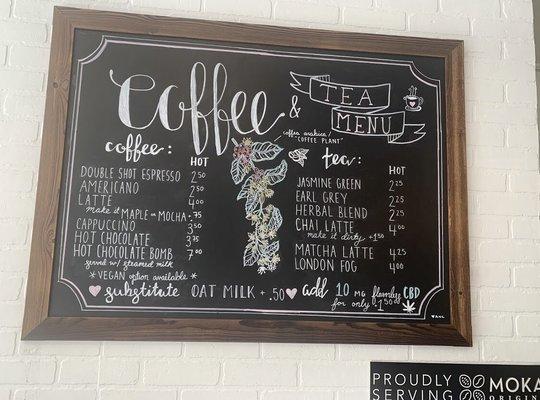 Coffee & TEA MENU
coffea arabica/
"COFFEE PLANT"
coffee: HOT
DOUBLE SHOT ESPRESSO 2.50
AMERICANO 2.50
LATTE 4.00
make it MAPLE or MOCHA + .75
CAPPUCCINO 3.50
HOT CHOCOLATE 3.75
HOT CHOCOLATE BOMB 7.00
served w/ steamed milk
*VEGAN option available*
tea: HOT
JASMINE GREEN 2.25
EARL GREY 2.25
HERBAL BLEND 2.25
CHAI LATTE 4.00
make it dirty + 1.50
MATCHA LATTE 4.25
LONDON FOG 4.00
substitute OAT MILK + .50
add 10 MG CBD
for only + 1.50
PROUDLY
SERVING
MOKA
ORIGIN